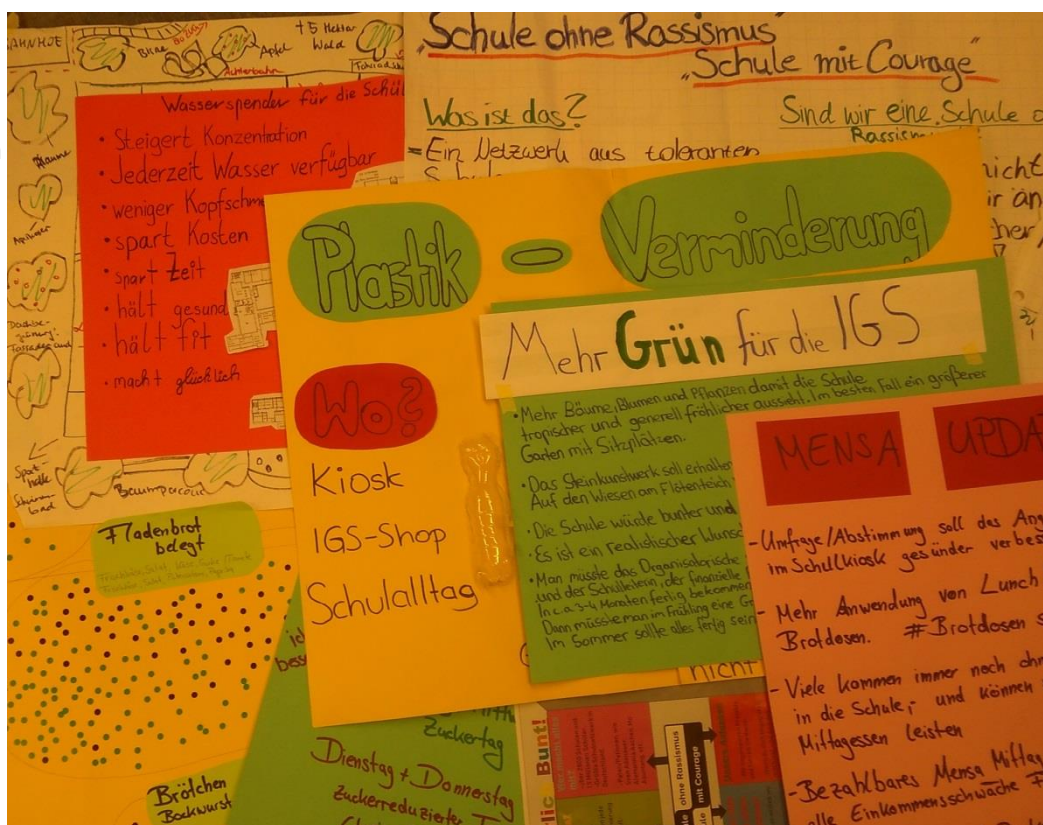 BAHNHOF
Birne
Apfel
+ 5 Hektar
Wald
Achterbahn
Wasserspender für die Schül
• Steigert Konzentration
• Jederzeit Wasser verfügbar
• weniger Kopfschme
• spart Kosten
• spart Zeit
• hält gesund
• hält fit
• macht glücklich
Pflaume
Sport
halle
"Schule ohne Rassismus"
"Schule mit Courage"
Was ist das?
= Ein Netzwerk aus toleranten
Sind wir eine Schule o
nicht
Plastik - Verminderung
Wo?
Kiosk
IGS-Shop
Schulalltag
Mehr Grün für die IGS
• Mehr Bäume, Blumen und Pflanzen damit die Schule
tropischer und generell fröhlicher aussieht. Im besten Fall ein größerer
Garten mit Sitzplätzen.
• Das Steinkunstwerk soll erhalten
Auf den Wiesen am Flötenteich
• Die Schule würde bunter und
• Es ist ein realistischer Wunsch
• Man müsste das Organisatorische
und der Schulleiterin, der finanzielle
In c.a. 3-4 Monaten fertig bekommen
Dann müsste man im Frühling eine G
Im Sommer sollte alles fertig sein
nicht
MENSA UPDA
- Umfrage/Abstimmung soll das Ang
im Schulkiosk gesünder verbes
- Mehr Anwendung von Lunch
Brotdosen. #Brotdosen s
- Viele kommen immer noch ohn
in die Schule, und können
Mittagessen leisten
- Bezahlbares Mensa Mittag
alle Einkommensschwache F
Fladenbrot
belegt
Brötchen
Bockwurst
Zuckertag
Dienstag + Donnerstag
zuckerreduzierter
Bunt!
ohne Rassismus
mit Courage